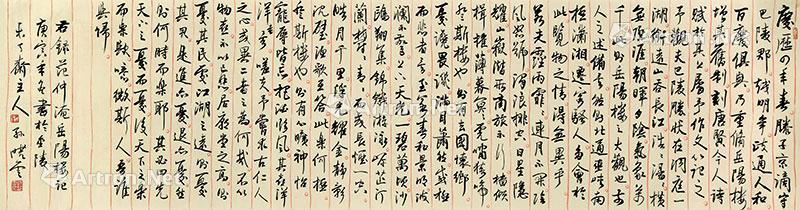 慶曆四年春滕子京謫守
巴陵郡越明年政通人和
百廢俱興乃重脩岳陽樓
增其舊制刻唐賢今人詩
賦於其上屬予作文以記之
予觀夫巴陵勝狀在洞庭一
湖銜遠山吞長江浩浩湯湯橫
無際涯朝暉夕陰氣象萬
千此則岳陽樓之大觀也前
人之述備矣然則北通巫峽南
極瀟湘遷客騷人多會於
此覽物之情得無異乎
若夫霪雨霏霏連月不開陰
風怒號濁浪排空日星隱
耀山岳潛形商旅不行檣傾
楫摧薄暮冥冥虎嘯猿啼
登斯樓也則有去國懷鄉
憂讒畏譏滿目蕭然感極
而悲者矣至若春和景明波
瀾不驚上下天光一碧萬頃沙
鷗翔集錦鱗游泳岸芷汀
蘭郁郁青青而或長煙一空
皓月千里浮光耀金靜影
沉璧漁歌互答此樂何極
登斯樓也則有心曠神怡
寵辱皆忘把酒臨風其喜洋
洋者矣嗟夫予嘗求古仁人
之心或異二者之為何哉不以
物喜不以己悲居廟堂之高則
憂其民處江湖之遠則憂
其君是進亦憂退亦憂然
則何時而樂耶其必曰先
天下之憂而憂後天下之樂
而樂歟噫微斯人吾誰
與歸
右錄范仲淹岳陽樓記
庚寅年冬書於金陵
齋主人孫曉雲
Artron.Net